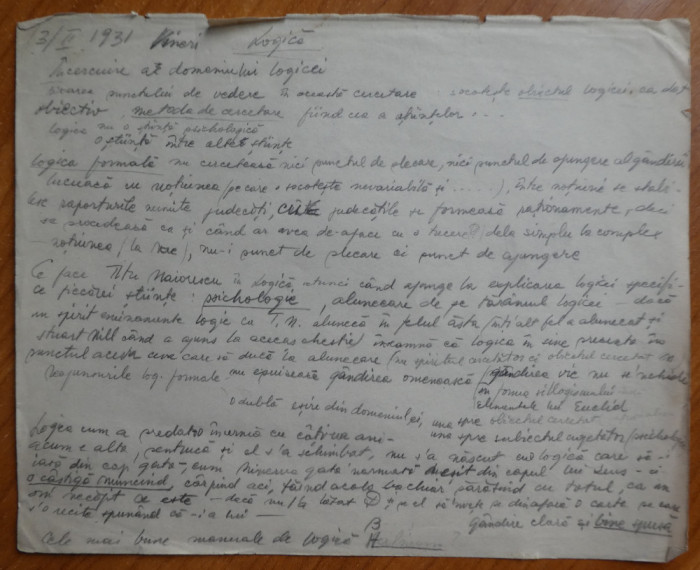 13/II 1931 Vineri Logică
Încercuire at domeniului logicei
punctului de vedere în această cercetare socotește obiectul logicei ca dat
obiectiv, metoda de cercetare fiind cea a științelor...
logica nu o știință psichologică
o știință între alte științe
Logica formală nu cercetează nici punctul de plecare, nici punctul de ajungere al gândirii
lucrează cu noțiunea (pe care o socotește invariabilă și .....), între noțiuni se stabi-
lesc raporturile numite judecăți, cu judecățile se formează raționamente, deci
se procedează ca și când ar avea de-aface cu o de la simplu la complex
noțiunea (la), nu-i punct de plecare ci punct de ajungere
Ce face Titu Maiorescu în Logică, atunci când ajunge la explicarea logicei specifi-
ce fiecărei științe: psichologie, alunecare de pe tărâmul logicei - dacă
un spirit eminamente logic ca T. M. alunecă în felul ăsta (nu altfel a alunecat și
Stuart Mill când a ajuns la aceeași chestie) înseamnă că logica în sine prezintă în
punctul acesta ceva care să ducă la alunecare (în spiritul cercetător și obiectul cercetat de
raporturile log. formale nu epuizează gândirea omenească (gândirea vie nu se
în forma sillogismului
elementele lui Euclid
o dublă eșire din domeniul ei, una spre obiectul cercetat
una spre subiectul cugetător (psichologie
Logica cum a predat-o înainte cu câțiva ani -
acum e alta, pentrucă și el s'a schimbat, nu s'a născut cu o logică care să-i
iasă din cap gata - cum Minerva gata a ieșit din capul lui Zeus - ci
o câștigă muncind, cârpind aci, făcând acolo, părăsind cu totul, ca un
om necăjit ce este - dacă nu l-a lăsat D-zeu și el să învețe pe dinafară o carte pe care
s'o recite spunând că-i a lui -
Gândire clară și bine spusă
Cele mai bune manuale de logică
B